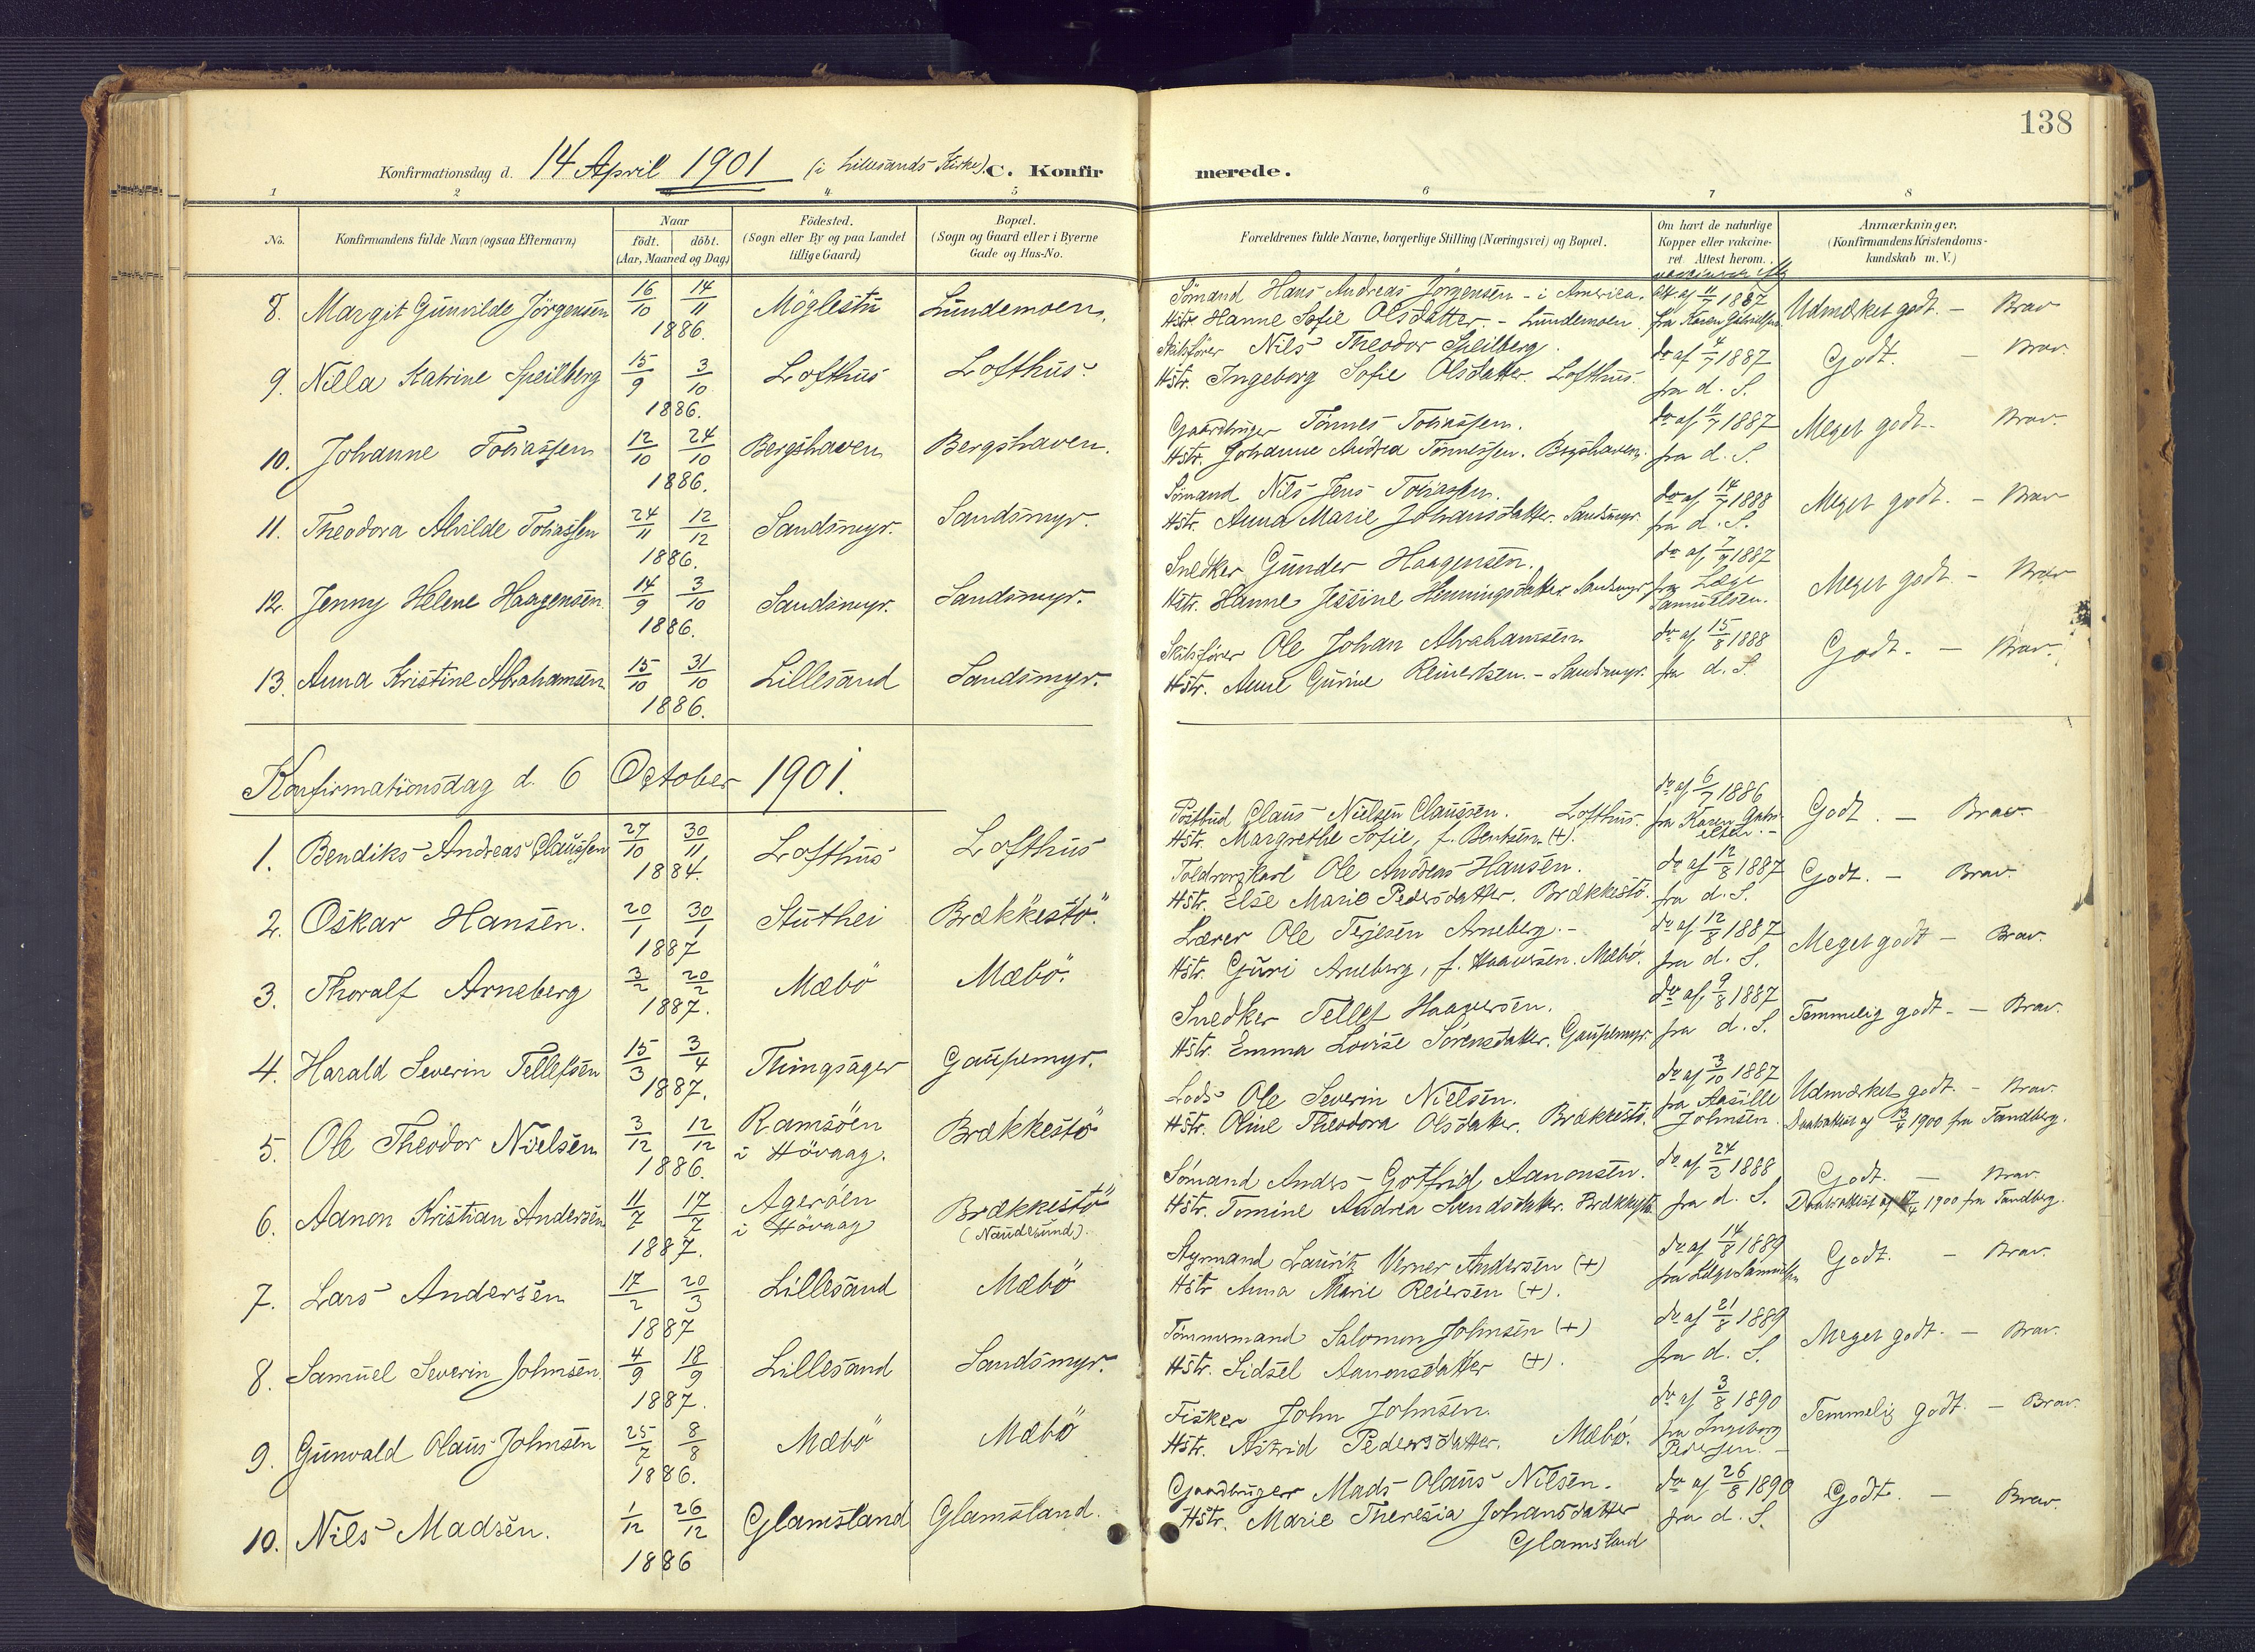 138
Konfirmationsdag d. 14 April 1901 (i Lillesands Kirke). C. Konfirmerede.
1 2 3 4 5 6 7 8
No.
Konfirmandens fulde Navn (ogsaa Efternavn)
Naar
födt. döbt.
(Aar, Maaned og Dag)
Födested.
(Sogn eller By og paa Landet
tillige Gaard)
Bopæl.
(Sogn og Gaard eller i Byerne
Gade og Hus-No.
Forældrenes fulde Navne, borgerlige Stilling (Næringsvei) og Bopæl.
Om havt de naturlige
Kopper eller vakcine-
ret. Attest herom.
Anmærkninger.
(Konfirmandens Kristendoms-
kundskab m. V.)
8. Margit Gunvilde Jörgensen 16/10 14/11 1886. Möglestu Lundemoen.
Sömand Hans Andreas Jörgensen - i America.
Hstr. Hanne Sofie Olsdatter. - Lundemoen.
Att. af 11/7 1887
fra Karen Gabrielsen
Udmærket godt. - Brav
9. Nilla Katrine Speilberg 15/9 3/10 1886. Lofthus Lofthus.
Skibsförer Nils Theodor Speilberg.
Hstr. Ingeborg Sofie Olsdatter. Lofthus.
do af 4/7 1887
fra d. S.
Godt. - Brav.
10. Johanne Tobiassen 12/10 24/10 1886. Bergshaven Bergshaven.
Gaardbruger Tönnes Tobiassen.
Hstr. Johanne Andrea Tönnessen. Bergshaven.
do af 11/7 1887
fra d. S.
Meget godt. Brav.
11. Theodora Alvilde Tobiassen 24/11 12/12 1886. Sandsmyr. Sandsmyr.
Sömand Nils Jens Tobiassen.
Hstr. Anna Marie Johansdatter. Sandsmyr.
do af 14/7 1888
fra d. S.
Meget godt. - Brav
12. Jenny Helene Haagensen 14/9 3/10 1886. Sandsmyr. Sandsmyr.
Snedker Gunder Haagensen.
Hstr. Hanne Jessine Henningsdatter. Sandsmyr.
do af 7/9 1887
fra Læge
Samuelsen.
Meget godt. - Brav
13. Anna Kristine Abrahamsen 15/10 31/10 1886. Lillesand Sandsmyr.
Skibsförer Ole Johan Abrahamsen.
Hstr. Anne Gurine Reinertsen. - Sandsmyr.
do af 15/8 1888
fra d. S.
Godt. - Brav.
Konfirmationsdag d. 6 October 1901.
1. Bendiks Andreas Claussen 27/10 30/11 1884. Lofthus Lofthus
Postbud Claus Nielsen Claussen. Lofthus.
Hstr. Margrethe Sofie, f. Bentsen (+).
do af 6/7 1886
fra Karen Gabri-
elsen.-
Godt. - Brav.
2. Oskar Hansen. 20/1 30/1 1887 Stuthei Brækkestö.
Toldrorskarl Ole Andreas Hansen.
Hstr. Else Marie Pedersdatter. Brækkestö.
do af 12/8 1887
fra d. S.
Godt. - Brav.
3. Thoralf Arneberg 3/2 20/2 1887. Mæbö Mæbö.
Lærer Ole Terjesen Arneberg.-
Hstr. Guri Arneberg, f. Haavorsen. Mæbö.
do af 12/8 1887
fra d. S.
Meget godt - Brav.
4. Harald Severin Tellefsen 15/3 3/4 1887. Thingsager Gaupemyr.
Snedker Tellef Haaversen.
Hstr. Emma Lovise Sörensdatter. Gaupemyr.
do af 9/8 1887
fra d. S.
Temmelig godt. - Brav.
5. Ole Theodor Nielsen 3/12 12/12 1886. Ramsöen
i Hövaag. Brækkestö
Lods Ole Severin Nielsen.
Hstr. Oline Theodora Olsdatter. Brækkestö.
do af 3/10 1887
fra Aasille
Johnsen.
Udmærket godt. - Brav.
Daabsattest af 13/4 1900 fra Tandberg.
6. Aanon Kristian Andersen 11/7 17/7 1887. Ageröen
i Hövaag Brækkestö
(Naudesund).
Sömand Anders Gotfrid Aanonsen.
Hstr. Tomine Andrea Svendsdatter. Brækkestö
do af 24/2 1888
fra d. S.
Godt. - Brav.
Daabsattest af 17/4 1900 fra Tandberg.
7. Lars Andersen 17/2 20/3 1887 Lillesand Mæbö
Styrmand Lauritz Verner Andersen (+)
Hstr. Anna Marie Reiersen (+).
do af 14/8 1889
fra Læge Samuelsen
Godt. - Brav.
8. Samuel Severin Johnsen. 4/9 18/9 1887. Lillesand Sandsmyr.
Tömmermand Salomon Johnsen (+)
Hstr. Sidsel Aanonsdatter (+).
do af 21/8 1889
fra d. S.
Meget godt. - Brav.
9. Gunvald Olaus Johnsen 25/7 8/8 1886. Mæbö Mæbö
Fisker John Johnsen.
Hstr. Astrid Pedersdatter. Mæbö.
do af 3/8 1890
fra Ingeborg
Pedersen.-
Temmelig godt. - Brav.
10. Nils Madsen. 1/12 26/12 1886 Glamsland Glamsland.
Gaardbruger Mads Olaus Nilsen.
Hstr. Marie Theresia Johansdatter
Glamsland
do af 26/8 1890
fra d. S.
Godt. - Brav.